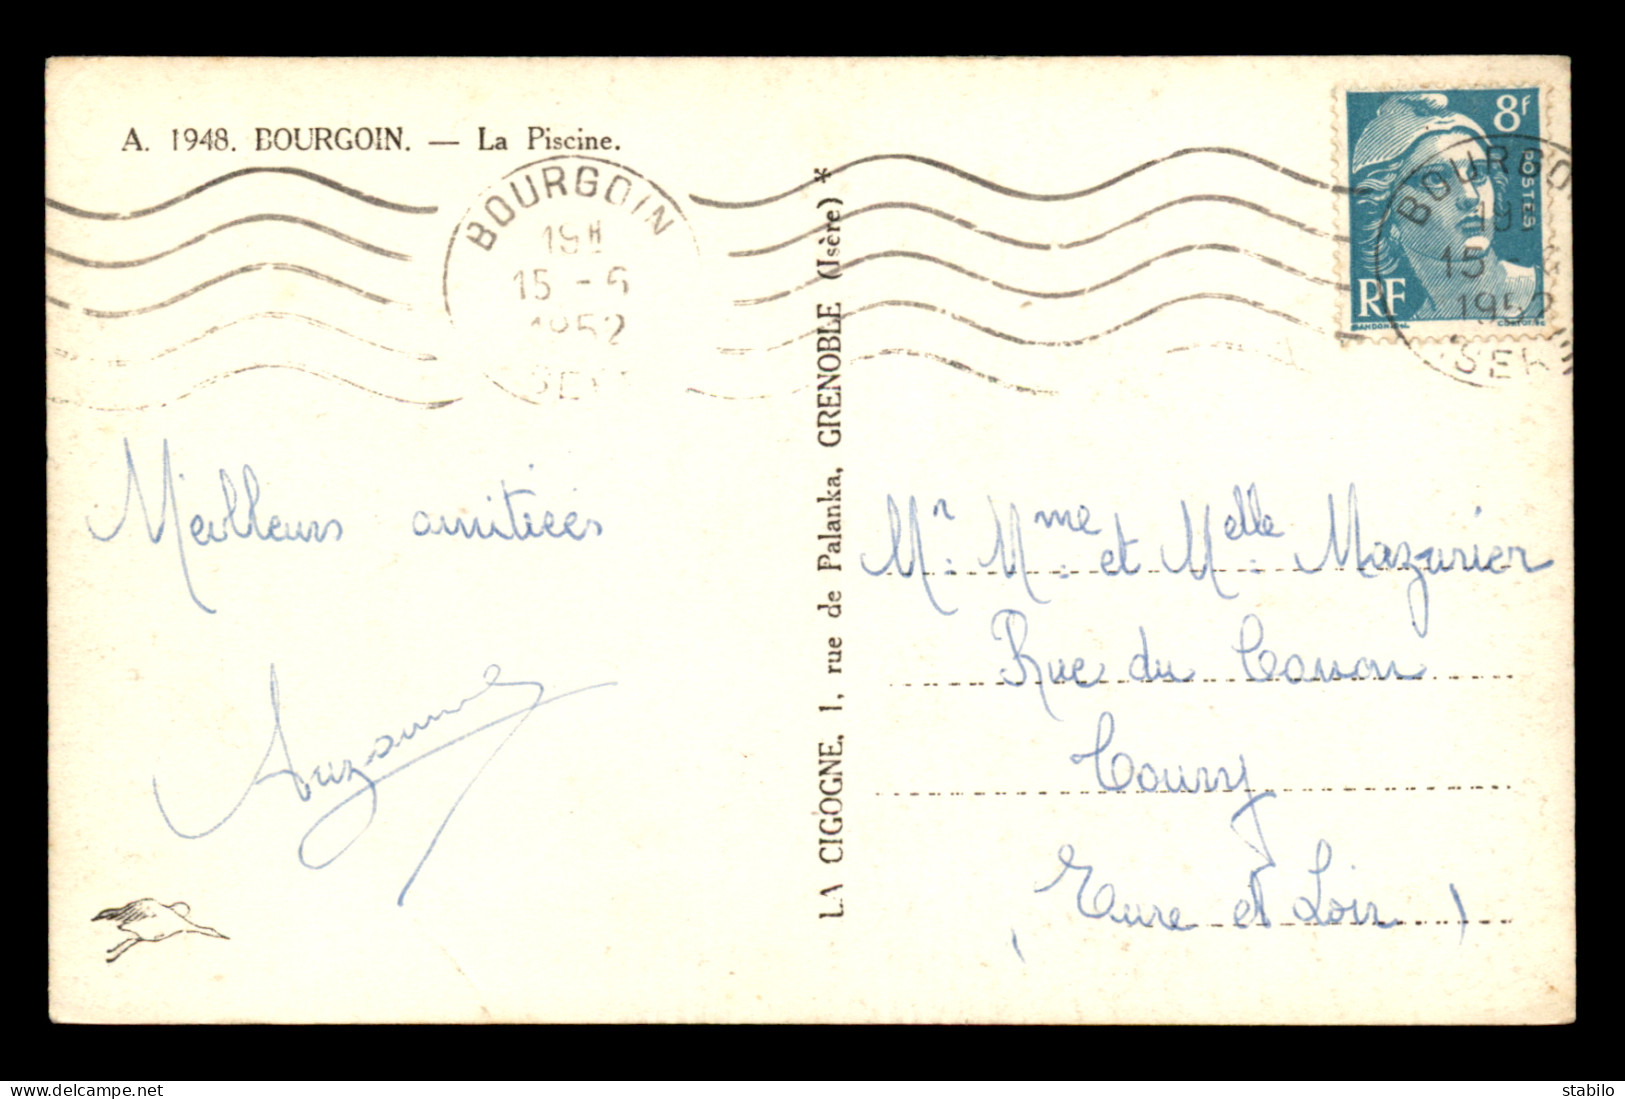 A. 1948. BOURGOIN. — La Piscine.
BOURGOIN
19H
15 - 6
1952
ISERE
8F
POSTES
RF
GANDON
BOURGOIN
15 -
1952
Meilleurs amitiées
Suzanne
LA CIGOGNE, 1, rue de Palanka, GRENOBLE (Isère) *
Mr: Mme: et Melle: Mazurier
Rue du Canon
Toury
(Eure et Loir)
stabilo